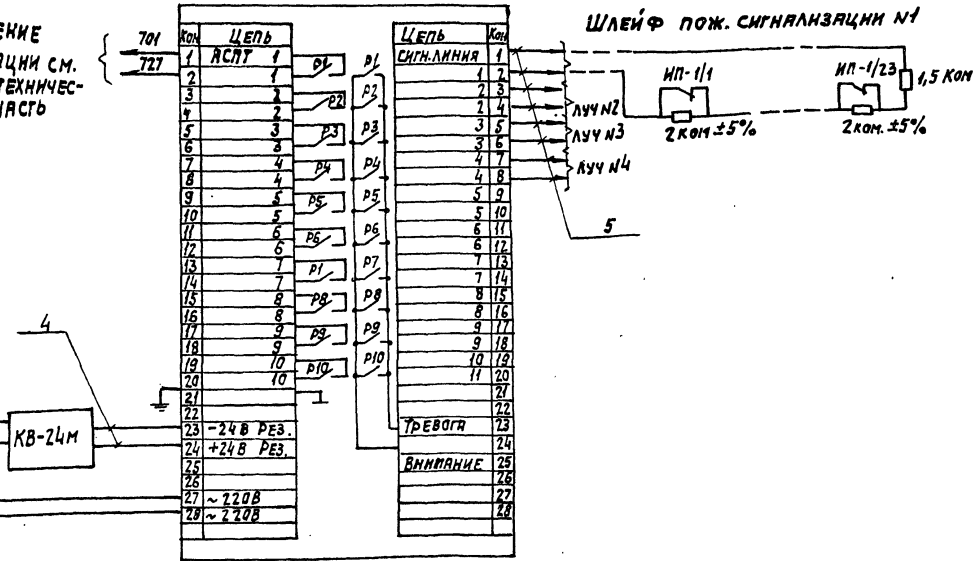 ЕНИЕ
АЦИИ СМ.
ТЕХНИЧЕС-
АСТЬ
701
727
КОН
ЦЕПЬ
1 АСПТ 1
2 1
3 2
4 2
5 3
6 3
7 4
8 4
9 5
10 5
11 6
12 6
13 7
14 7
15 8
16 8
17 9
18 9
19 10
20 10
21
22
23 -24В РЕЗ.
24 +24В РЕЗ.
25
26
27 ~220В
28 ~220В
P1
P2
P3
P4
P5
P6
P1
P8
P9
P10
P1
P2
P3
P4
P5
P6
P7
P8
P9
P10
ЦЕПЬ
КОН
СИГН.ЛИНИЯ 1
1 2
2 3
2 4
3 5
3 6
4 7
4 8
5 9
5 10
6 11
6 12
7 13
7 14
8 15
8 16
9 17
9 18
10 19
11 20
21
22
ТРЕВОГА 23
24
ВНИМАНИЕ 25
26
27
28
ШЛЕЙФ ПОЖ. СИГНАЛИЗАЦИИ N1
ИП-1/1
2 КОМ ±5%
ИП-1/23
2 КОМ. ±5%
1,5 КОМ
ЛУЧ N2
ЛУЧ N3
ЛУЧ N4
5
4
КВ-24М